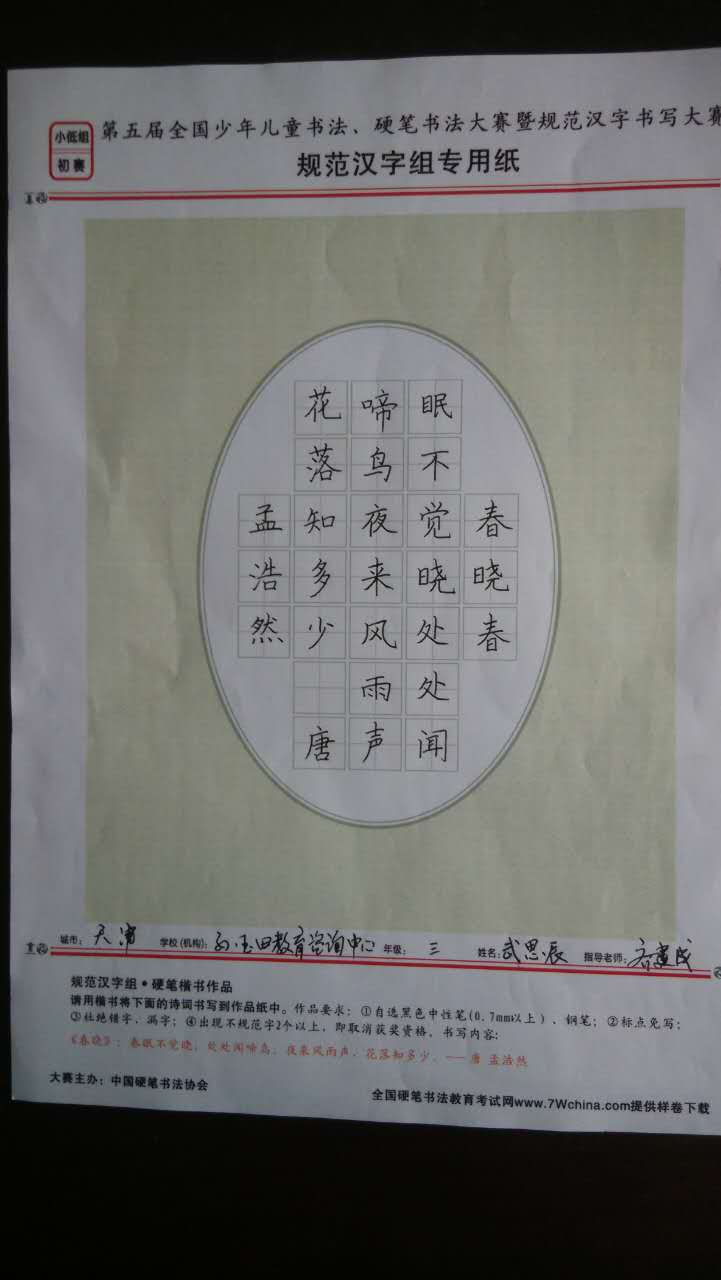 小低组
初赛
第五届全国少年儿童书法、硬笔书法大赛暨规范汉字书写大赛
规范汉字组专用纸
春晓春
眠不觉晓处处闻
啼鸟夜来风雨声
花落知多少 唐
孟浩然
城市: 天津 学校(机构): 孙玉田教育咨询中心 年级: 三 姓名: 武思辰 指导老师: 齐建成
规范汉字组•硬笔楷书作品
请用楷书将下面的诗词书写到作品纸中。作品要求：①自选黑色中性笔(0.7mm以上)、钢笔；②标点免写；
③杜绝错字、漏字；④出现不规范字2个以上，即取消获奖资格。书写内容：
《春晓》：春眠不觉晓，处处闻啼鸟。夜来风雨声，花落知多少。——唐 孟浩然
大赛主办：中国硬笔书法协会
全国硬笔书法教育考试网www.7Wchina.com提供样卷下载